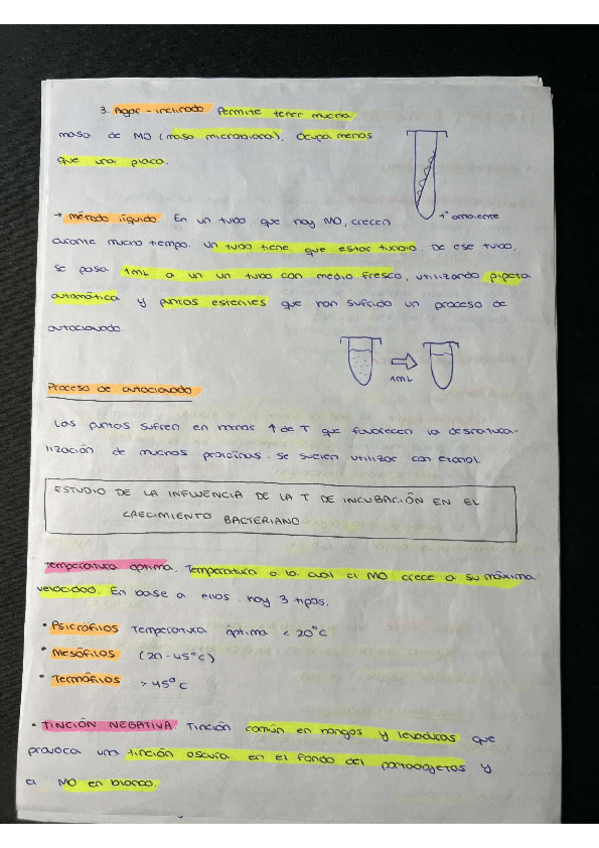 3. Agar-inclinado Permite tener mucha
masa de MO (masa microbiana). Ocupa menos
que una placa.
Tª ambiente
→ Método líquido. En un tubo que hay MO, crecen
durante mucho tiempo. Un tubo tiene que estar turbio. De ese tubo,
se pasa 1mL a un un tubo con medio fresco, utilizando pipeta
automática y puntas estériles que han sufrido un proceso de
autoclavado.
1mL
Proceso de autoclavado
Las puntas sufren en menos ↑ de T que favorecen la desnatura-
lización de muchas proteínas. Se suelen utilizar con etanol.
ESTUDIO DE LA INFLUENCIA DE LA T DE INCUBACIÓN EN EL
CRECIMIENTO BACTERIANO
Temperatura óptima. Temperatura a la cual el MO crece a su máxima
velocidad. En base a ellos. hay 3 tipos.
• Psicrófilos Temperatura óptima < 20°C
• Mesófilos (20-45°C)
• Termófilos >45°C
• TINCIÓN NEGATIVA. Tinción común en hongos y levaduras que
provoca una tinción oscura en el fondo del portaobjetos y
el MO en blanco.